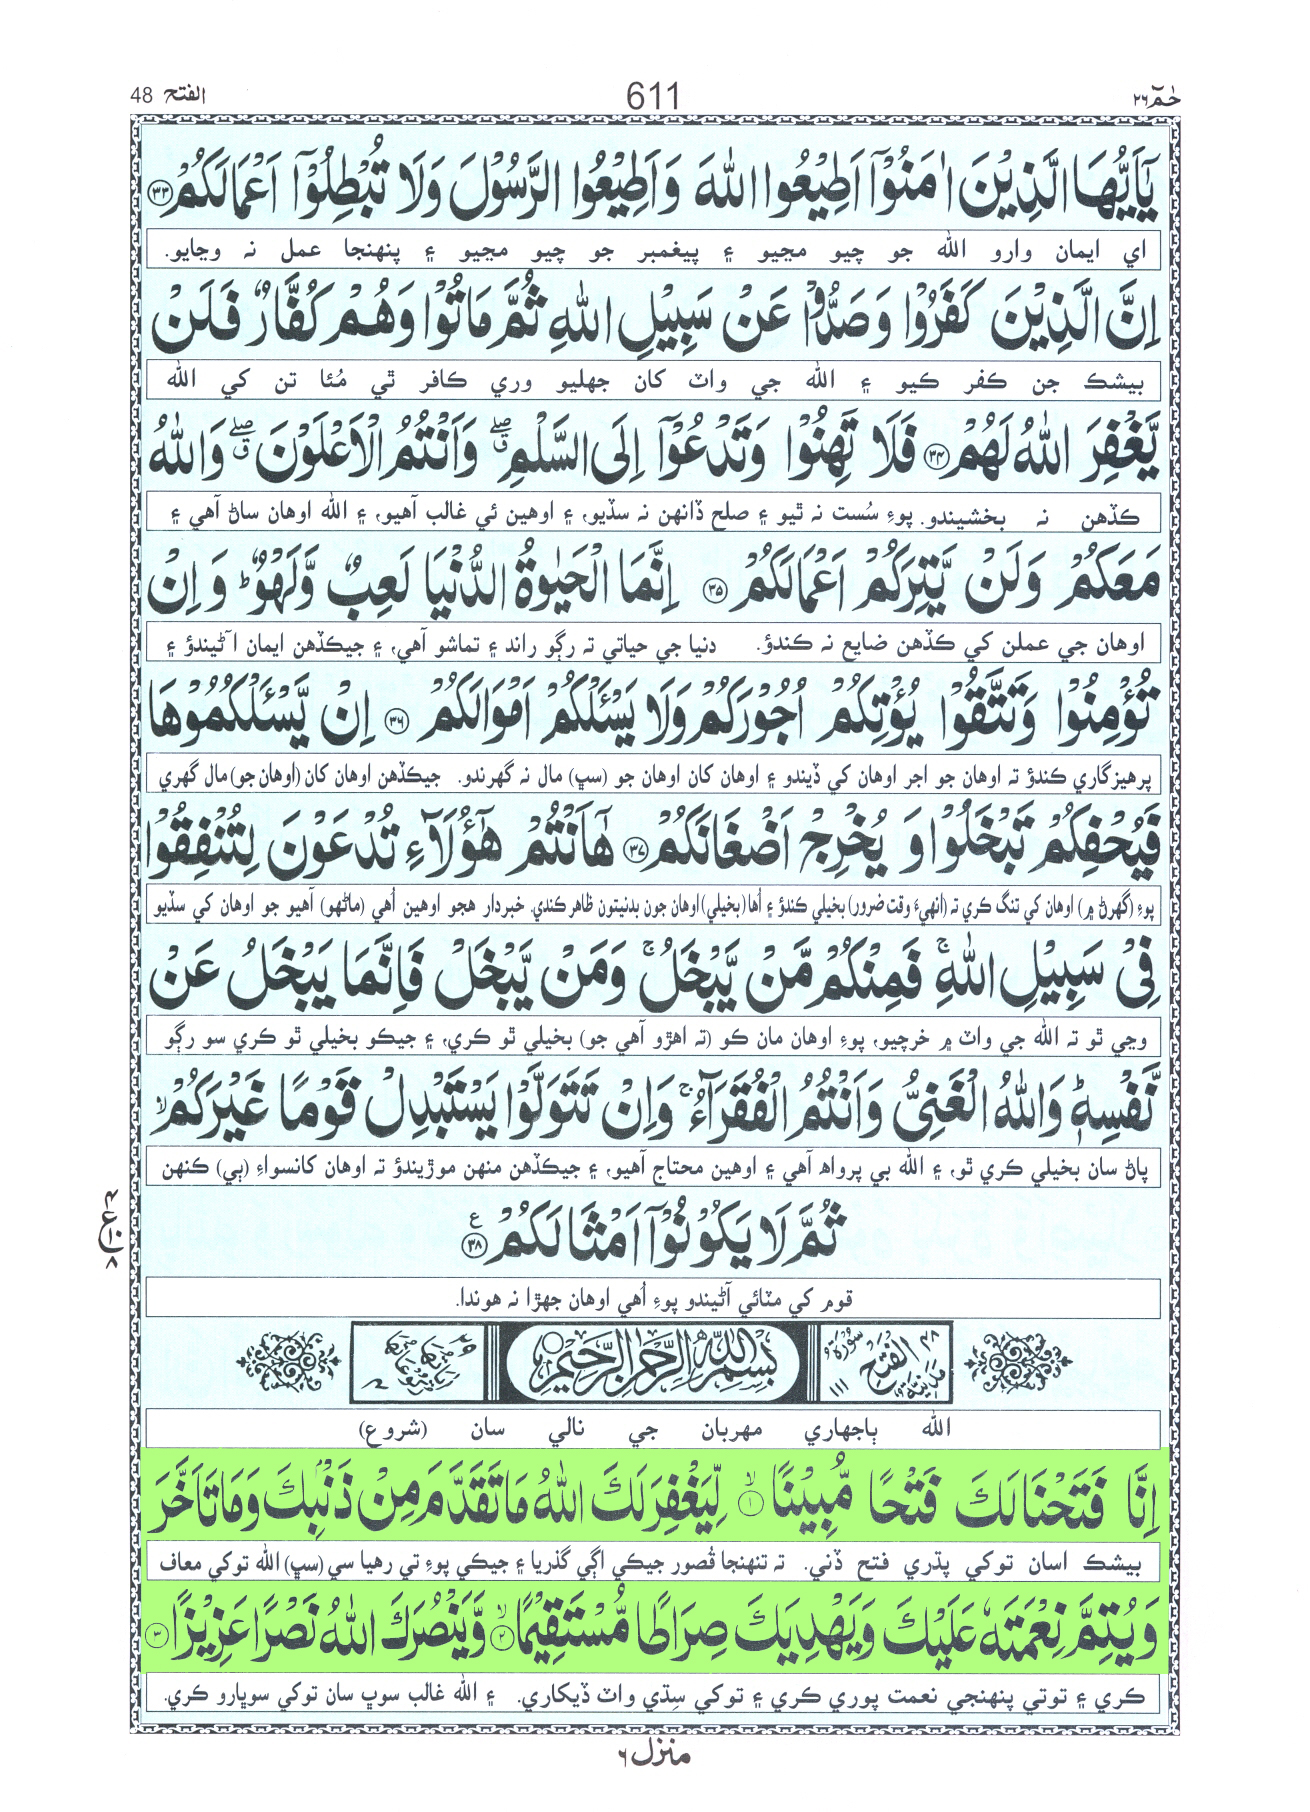 الفتح 48
611
حٰمٓ ٢٦
يٰٓاَيُّهَا الَّذِيْنَ اٰمَنُوْٓا اَطِيْعُوا اللّٰهَ وَاَطِيْعُوا الرَّسُوْلَ وَلَا تُبْطِلُوْٓا اَعْمَالَكُمْ ﴿۳۳﴾
اي ايمان وارو الله جو چيو مڃيو ۽ پيغمبر جو چيو مڃيو ۽ پنهنجا عمل نہ وڃايو.
اِنَّ الَّذِيْنَ كَفَرُوْا وَصَدُّوْا عَنْ سَبِيْلِ اللّٰهِ ثُمَّ مَاتُوْا وَهُمْ كُفَّارٌ فَلَنْ
بيشڪ جن ڪفر ڪيو ۽ الله جي واٽ کان جهليو وري ڪافر ٿي مُئا تن کي الله
يَّغْفِرَ اللّٰهُ لَهُمْ ﴿۳۴﴾ فَلَا تَهِنُوْا وَتَدْعُوْٓا اِلَى السَّلْمِ ۖق وَاَنْتُمُ الْاَعْلَوْنَ ۖق وَاللّٰهُ
ڪڏهن نہ بخشيندو. پوءِ سُست نہ ٿيو ۽ صلح ڏانهن نہ سڏيو، ۽ اوهين ئي غالب آهيو، ۽ الله اوهان ساڻ آهي ۽
مَعَكُمْ وَلَنْ يَّتِرَكُمْ اَعْمَالَكُمْ ﴿۳۵﴾ اِنَّمَا الْحَيٰوةُ الدُّنْيَا لَعِبٌ وَّلَهْوٌ ؕ وَاِنْ
اوهان جي عملن کي ڪڏهن ضايع نہ ڪندؤ. دنيا جي حياتي تہ رڳو راند ۽ تماشو آهي، ۽ جيڪڏهن ايمان آڻيندؤ ۽
تُؤْمِنُوْا وَتَتَّقُوْا يُؤْتِكُمْ اُجُوْرَكُمْ وَلَا يَسْـَٔلْكُمْ اَمْوَالَكُمْ ﴿۳۶﴾ اِنْ يَّسْـَٔلْكُمُوْهَا
پرهيزگاري ڪندؤ تہ اوهان جو اجر اوهان کي ڏيندو ۽ اوهان کان اوهان جو (سڀ) مال نہ گهرندو. جيڪڏهن اوهان کان (اوهان جو) مال گهري
فَيُحْفِكُمْ تَبْخَلُوْا وَ يُخْرِجْ اَضْغَانَكُمْ ﴿۳۷﴾ هٰٓاَنْتُمْ هٰٓؤُلَآءِ تُدْعَوْنَ لِتُنْفِقُوْا
پوءِ (گهرڻ ۾) اوهان کي تنگ ڪري تہ (انهيءَ وقت ضرور) بخيلي ڪندؤ ۽ اُها (بخيلي) اوهان جون بدنيتون ظاهر ڪندي. خبردار هجو اوهين اُهي (ماڻهو) آهيو جو اوهان کي سڏيو
فِيْ سَبِيْلِ اللّٰهِ ۚ فَمِنْكُمْ مَّنْ يَّبْخَلُ ۚ وَمَنْ يَّبْخَلْ فَاِنَّمَا يَبْخَلُ عَنْ
وڃي ٿو تہ الله جي واٽ ۾ خرچيو، پوءِ اوهان مان ڪو (تہ اهڙو آهي جو) بخيلي ٿو ڪري، ۽ جيڪو بخيلي ٿو ڪري سو رڳو
نَّفْسِهٖ ؕ وَاللّٰهُ الْغَنِيُّ وَاَنْتُمُ الْفُقَرَآءُ ۚ وَاِنْ تَتَوَلَّوْا يَسْتَبْدِلْ قَوْمًا غَيْرَكُمْ ۙ
پاڻ سان بخيلي ڪري ٿو، ۽ الله بي پرواھ آهي ۽ اوهين محتاج آهيو، ۽ جيڪڏهن منهن موڙيندؤ تہ اوهان کانسواءِ (ٻي) ڪنهن
ثُمَّ لَا يَكُوْنُوْٓا اَمْثَالَكُمْ ﴿۳۸﴾ ع
قوم کي مٽائي آڻيندو پوءِ اُهي اوهان جهڙا نہ هوندا.
۴۸ سُوْرَةُ الْفَتْحِ مَدَنِيَّةٌ ۱۱۱
بِسْمِ اللّٰهِ الرَّحْمٰنِ الرَّحِيْمِ
الله ٻاجهاري مهربان جي نالي سان (شروع)
اِنَّا فَتَحْنَا لَكَ فَتْحًا مُّبِيْنًا ۙ﴿۱﴾ لِّيَغْفِرَ لَكَ اللّٰهُ مَا تَقَدَّمَ مِنْ ذَنْۢبِكَ وَمَا تَاَخَّرَ
بيشڪ اسان توکي پڌري فتح ڏني. تہ تنهنجا قُصور جيڪي اڳي گذريا ۽ جيڪي پوءِ ٿي رهيا سي (سڀ) الله توکي معاف
وَيُتِمَّ نِعْمَتَهٗ عَلَيْكَ وَيَهْدِيَكَ صِرَاطًا مُّسْتَقِيْمًا ۙ﴿۲﴾ وَّيَنْصُرَكَ اللّٰهُ نَصْرًا عَزِيْزًا ﴿۳﴾
ڪري ۽ توتي پنهنجي نعمت پوري ڪري ۽ توکي سِڌي واٽ ڏيکاري. ۽ الله غالب سوڀ سان توکي سوڀارو ڪري.
منزل ٦